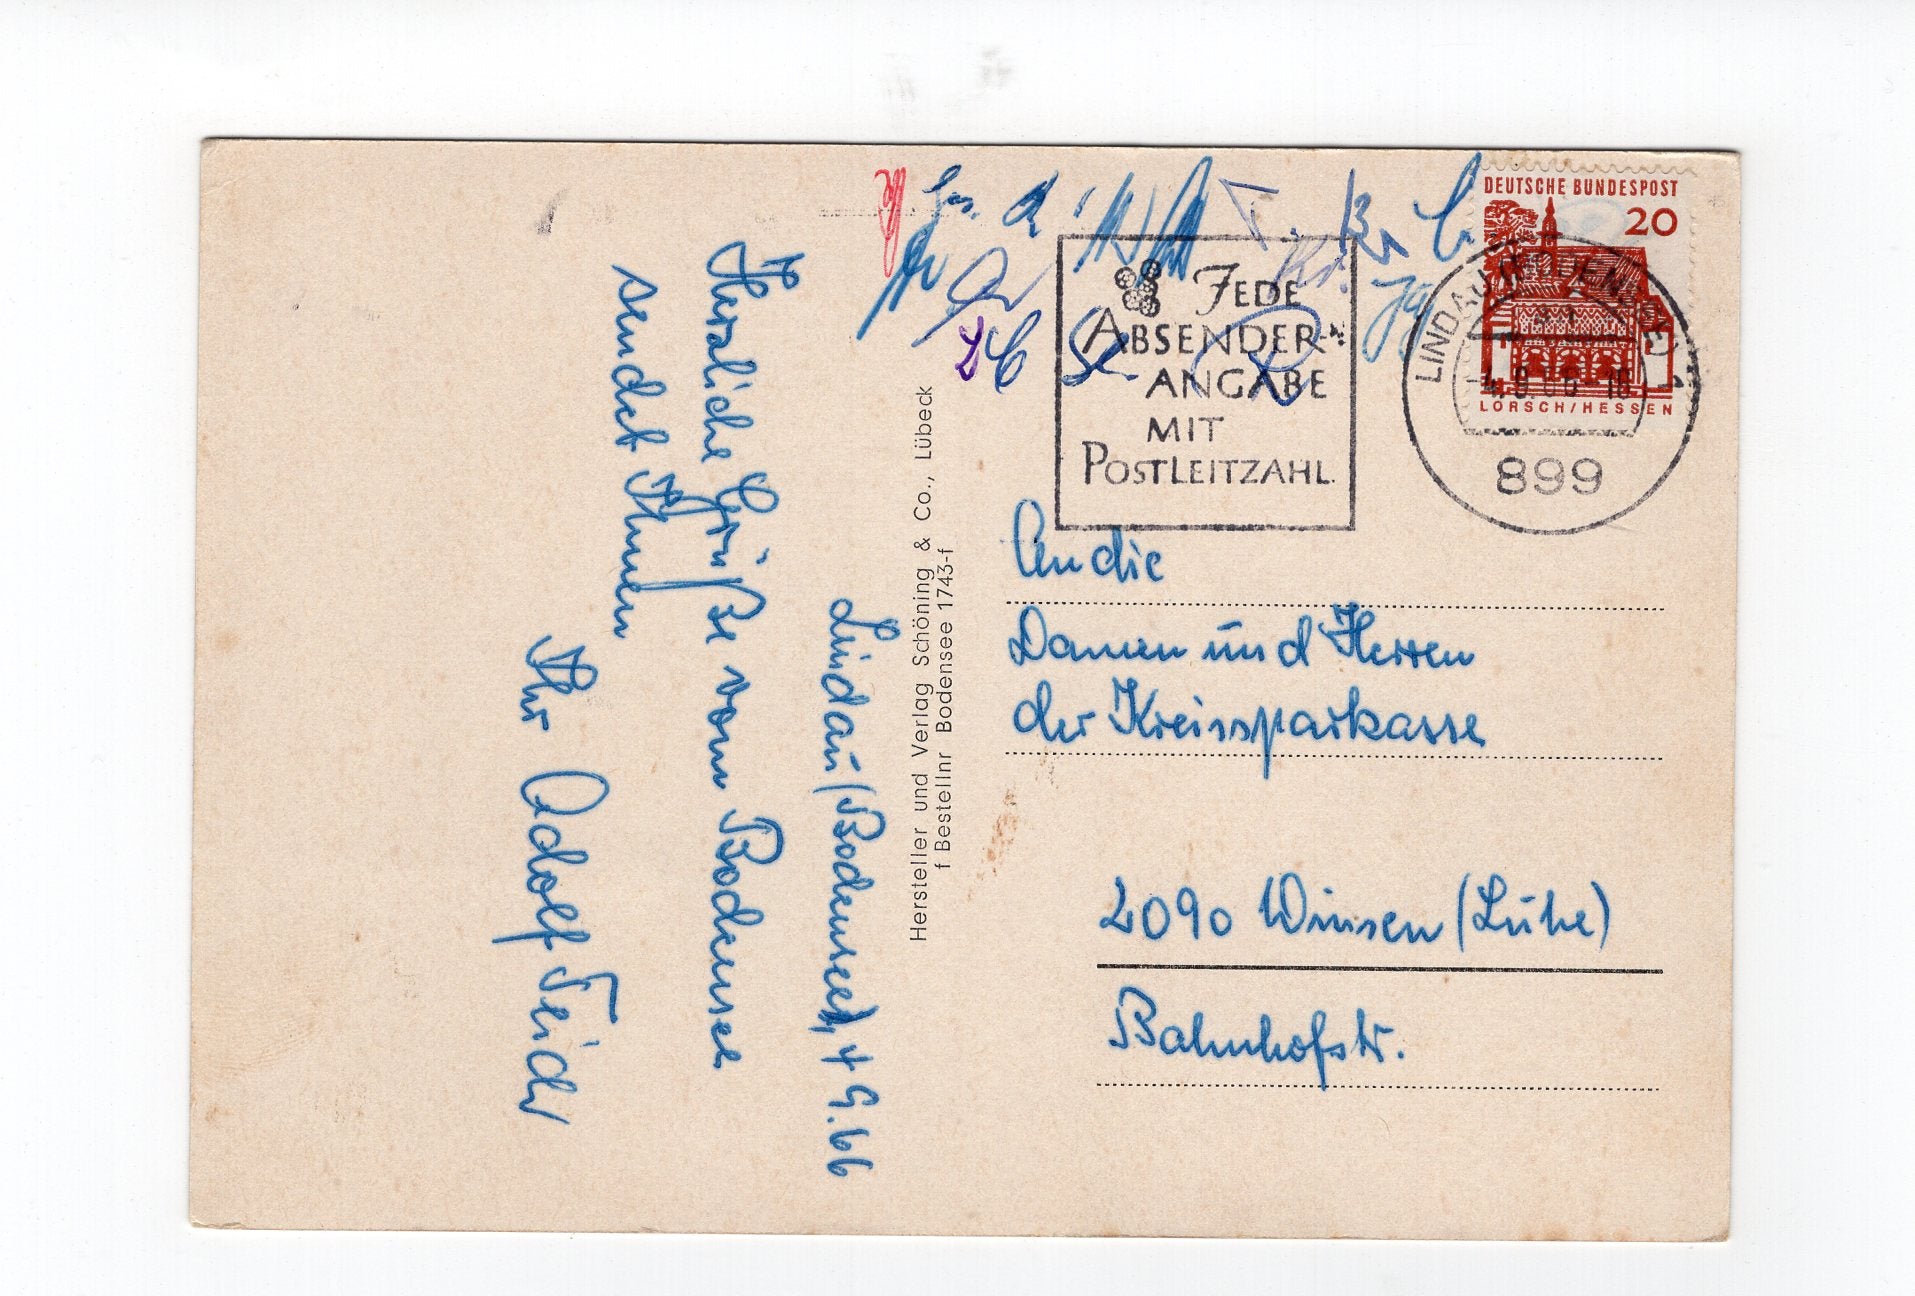 Lindau/Bodensee), 4 9.66
Herzliche Grüße vom Bodensee
sendet Ihnen
Ihr Adolf
Hersteller und Verlag Schöning & Co., Lübeck
f Bestellnr Bodensee 1743-f
DEUTSCHE BUNDESPOST
20
LORSCH/HESSEN
JEDE
ABSENDER-
ANGABE
MIT
POSTLEITZAHL.
LINDAU (BODENSEE) 1
899
An die
Damen und Herren
der Kreissparkasse
2090 Winsen (Luhe)
Bahnhofstr.